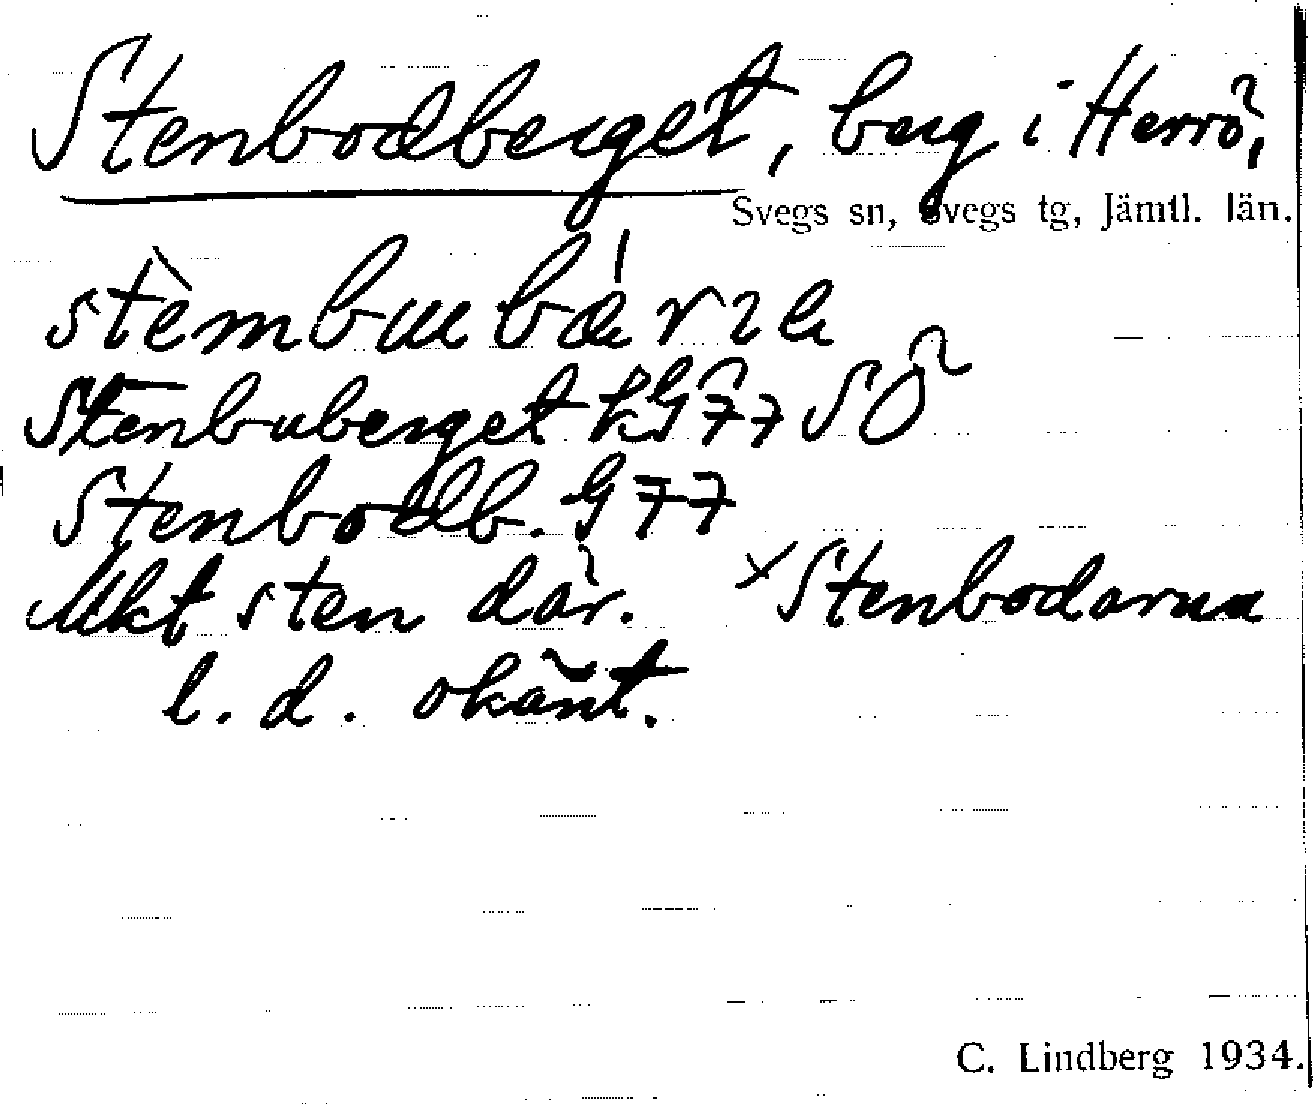 Stenbodberget, berg i Herrö,
Svegs sn, Svegs tg, Jämtl. län.
Stenbuberget kG77 SÖ
Stenbodb. G77
Mkt sten där. ×Stenbodarna
l. d. okänt.
C. Lindberg 1934.